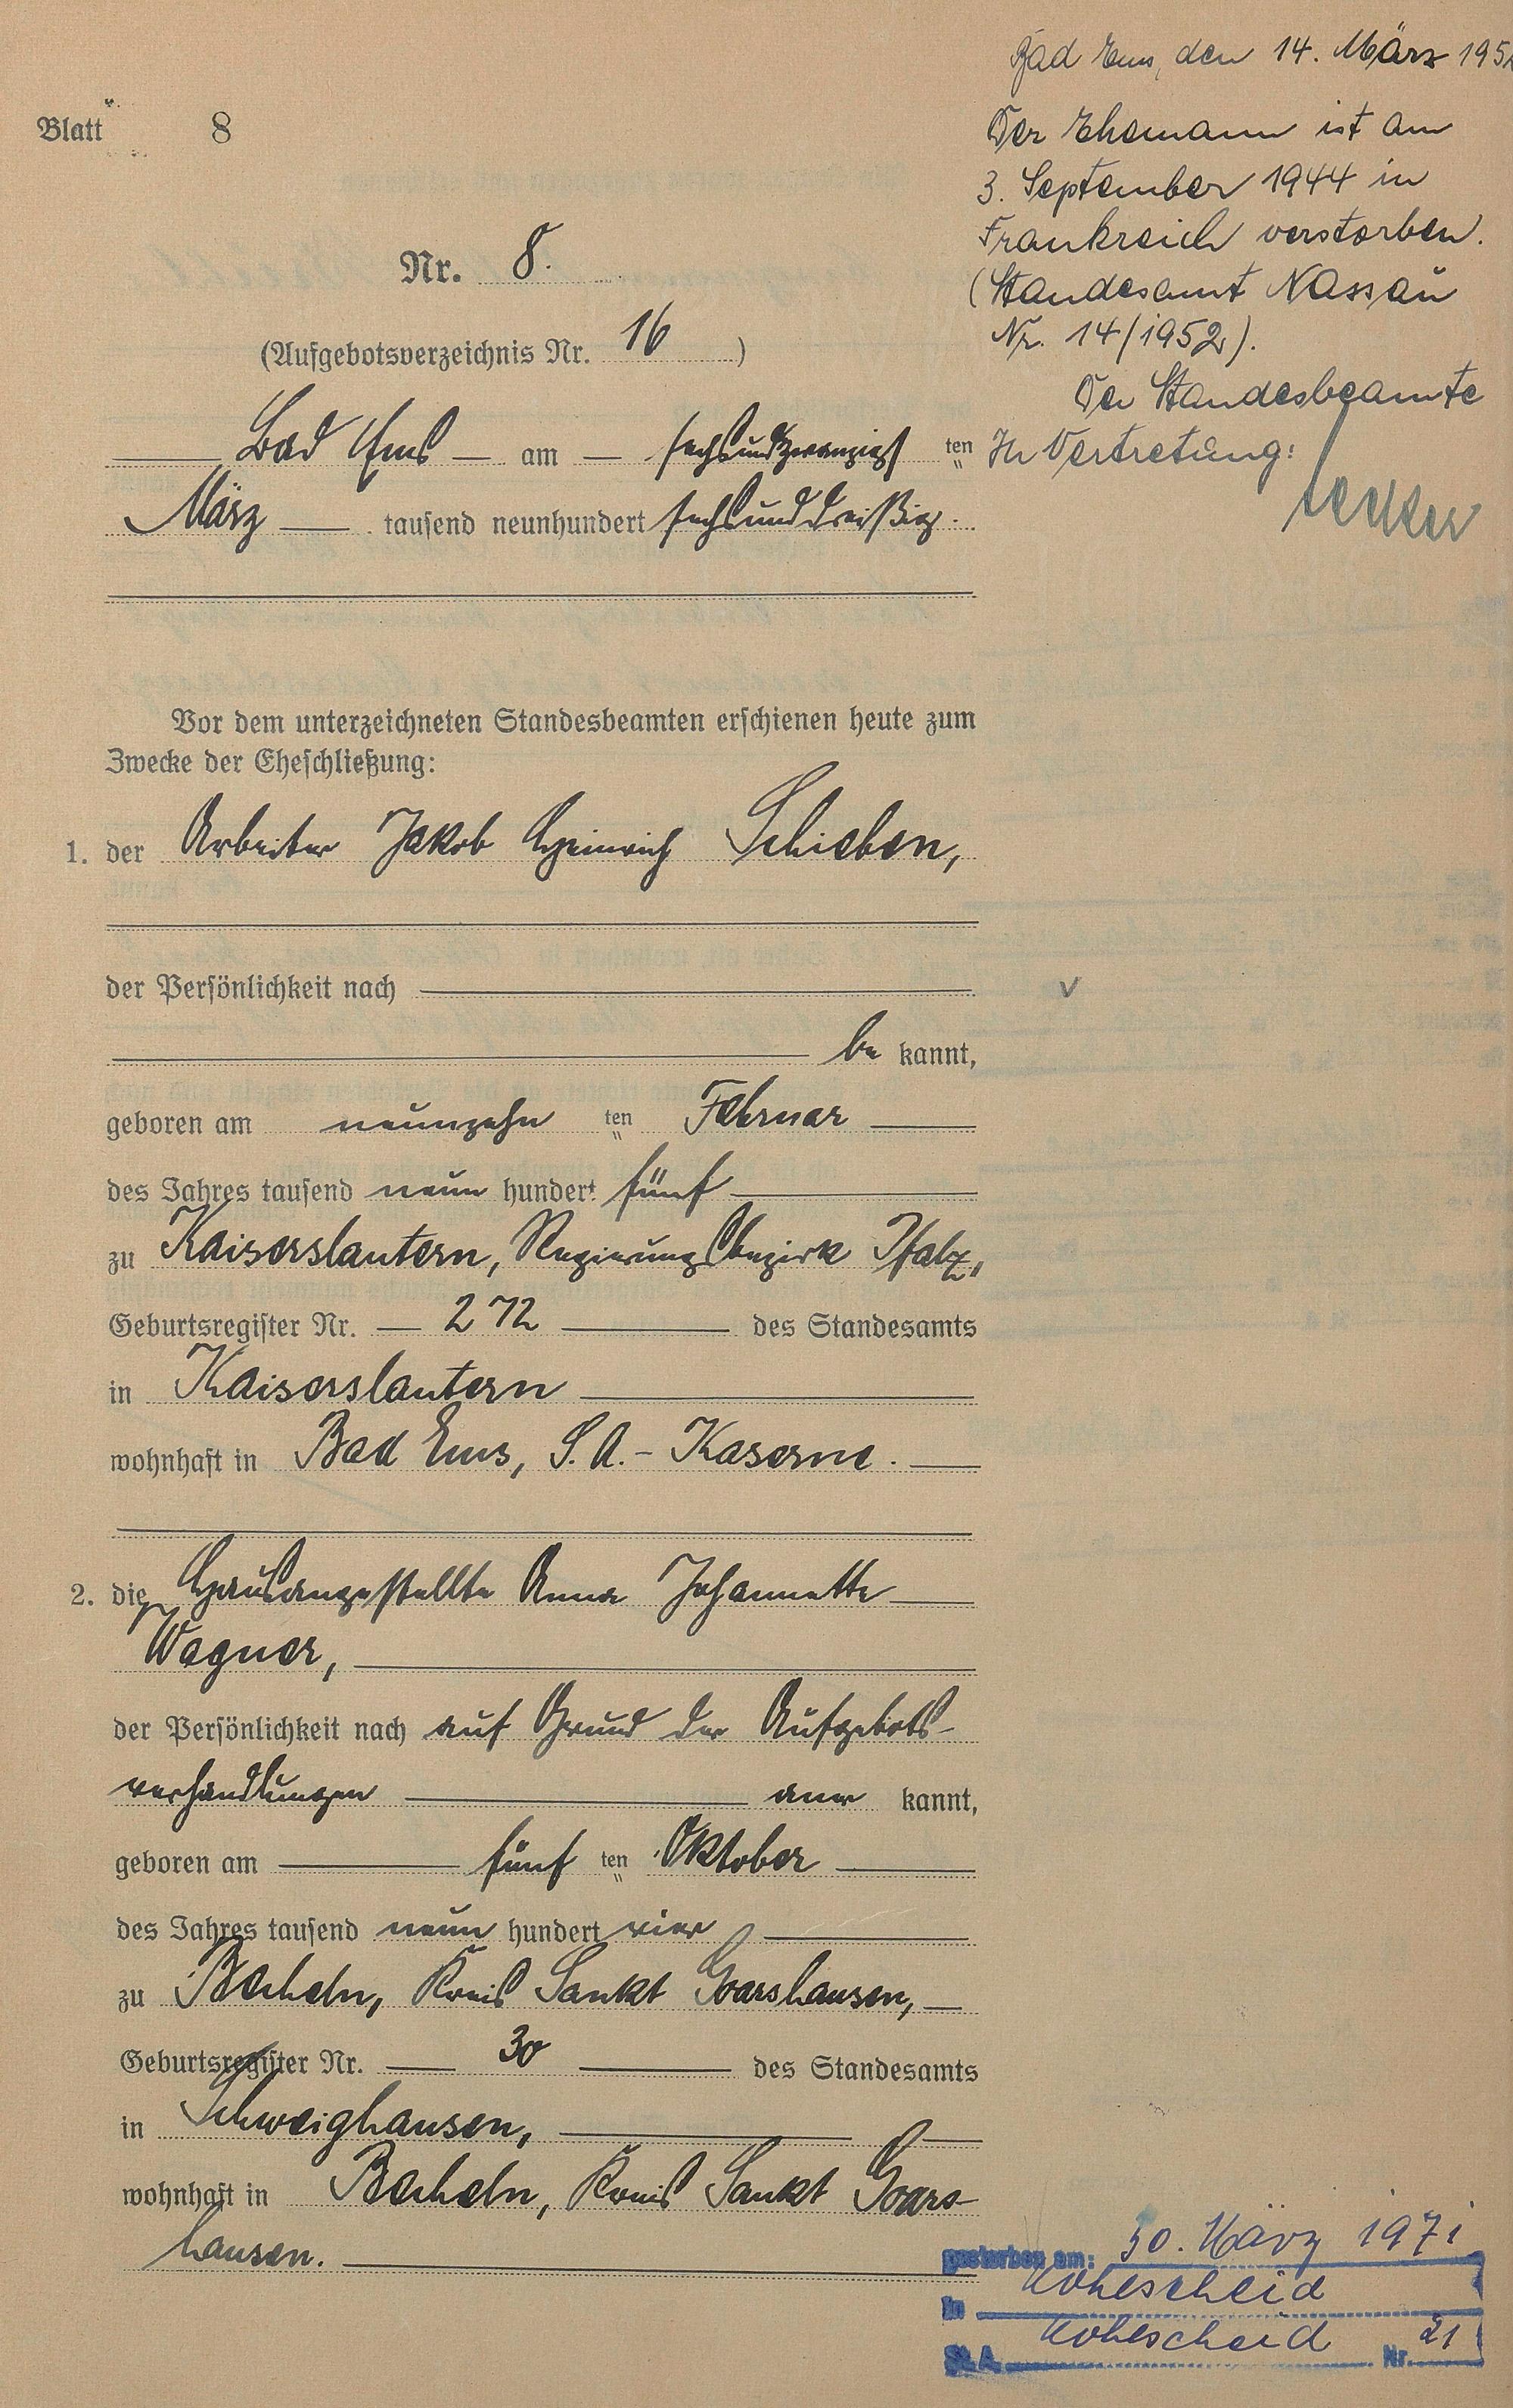 Blatt 8
Nr. 8.
(Aufgebotsverzeichnis Nr. 16)
Bad Ems am sechsundzwanzigsten
März tausend neunhundert sechsunddreißig.
Vor dem unterzeichneten Standesbeamten erschienen heute zum
Zwecke der Eheschließung:
1. der Arbeiter Jakob Heinrich Schieben,
der Persönlichkeit nach
be kannt,
geboren am neunzehn ten Februar
des Jahres tausend neun hundert fünf
zu Kaiserslautern, Regierungsbezirk Pfalz,
Geburtsregister Nr. 272 des Standesamts
in Kaiserslautern
wohnhaft in Bad Ems, S.A.-Kaserne.
2. die Hausangestellte Anna Johannette
Wagner,
der Persönlichkeit nach auf Grund der Aufgebots-
verhandlungen aner kannt,
geboren am fünf ten Oktober
des Jahres tausend neun hundert vier
zu Becheln, Kreis Sankt Goarshausen,
Geburtsregister Nr. 30 des Standesamts
in Schweighausen,
wohnhaft in Becheln, Kreis Sankt Goars-
hausen.
Bad Ems, den 14. März 195
Der Ehemann ist am
3. September 1944 in
Frankreich verstorben.
(Standesamt Nassau
Nr. 14/1952).
Der Standesbeamte
In Vertretung:
gestorben am: 30. März 1971
in Kohlscheid
St. A. Kohlscheid Nr. 21